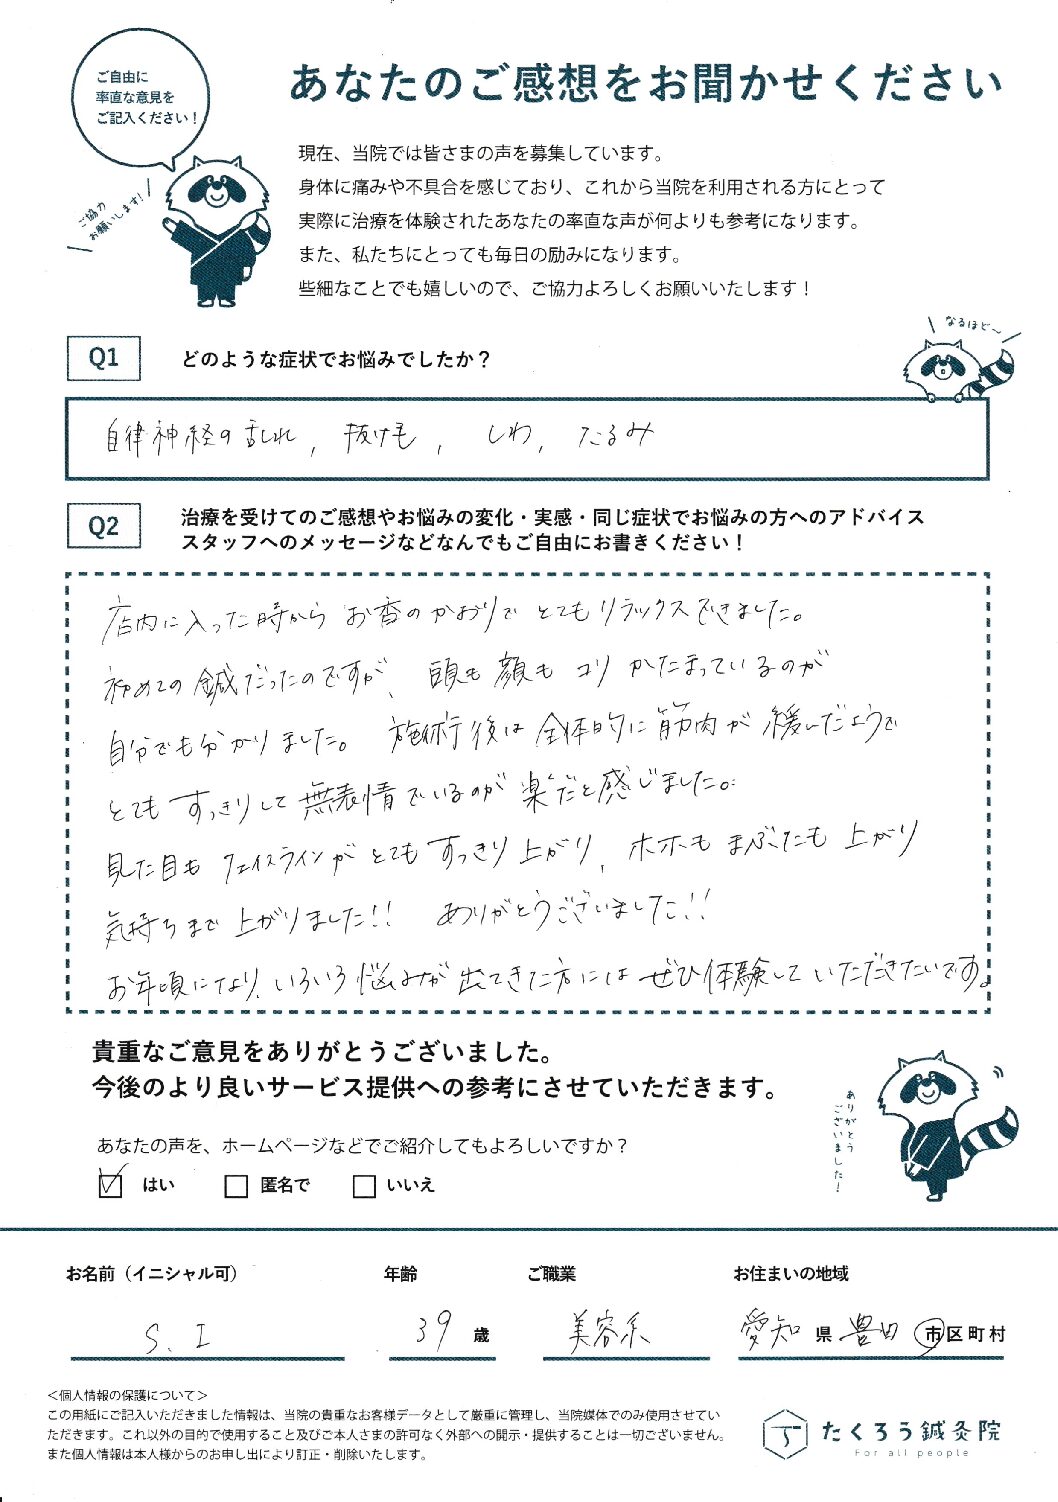 ご自由に
率直な意見を
ご記入ください！
あなたのご感想をお聞かせください
ご協力
お願いします！
現在、当院では皆さまの声を募集しています。
身体に痛みや不具合を感じており、これから当院を利用される方にとって
実際に治療を体験されたあなたの率直な声が何よりも参考になります。
また、私たちにとっても毎日の励みになります。
些細なことでも嬉しいので、ご協力よろしくお願いいたします！
なるほど〜
Q1 どのような症状でお悩みでしたか？
自律神経の乱れ, 抜け毛, しわ, たるみ
Q2 治療を受けてのご感想やお悩みの変化・実感・同じ症状でお悩みの方へのアドバイス
スタッフへのメッセージなどなんでもご自由にお書きください！
店内に入った時から お香のかおりで とてもリラックスできました。
初めての鍼だったのですが、頭も顔も コリ かたまっているのが
自分でも分かりました。 施術後は全体的に筋肉が緩んだようで
とてもすっきりして無表情でいるのが楽だと感じました。
見た目もフェイスラインがとてもすっきり上がり、ホホもまぶたも上がり
気持ちまで上がりました!! ありがとうございました!!
お年頃になり、いろいろ悩みが出てきた方にはぜひ体験していただきたいです。
貴重なご意見をありがとうございました。
今後のより良いサービス提供への参考にさせていただきます。
ありがとう
ございました！
あなたの声を、ホームページなどでご紹介してもよろしいですか？
はい 匿名で いいえ
お名前（イニシャル可） 年齢 ご職業 お住まいの地域
S. I 39 歳 美容系 愛知 県 豊田 市区町村
＜個人情報の保護について＞
この用紙にご記入いただきました情報は、当院の貴重なお客様データとして厳重に管理し、当院媒体でのみ使用させてい
ただきます。これ以外の目的で使用すること及びご本人さまの許可なく外部への開示・提供することは一切ございません。
また個人情報は本人様からのお申し出により訂正・削除いたします。
たくろう鍼灸院
For all people